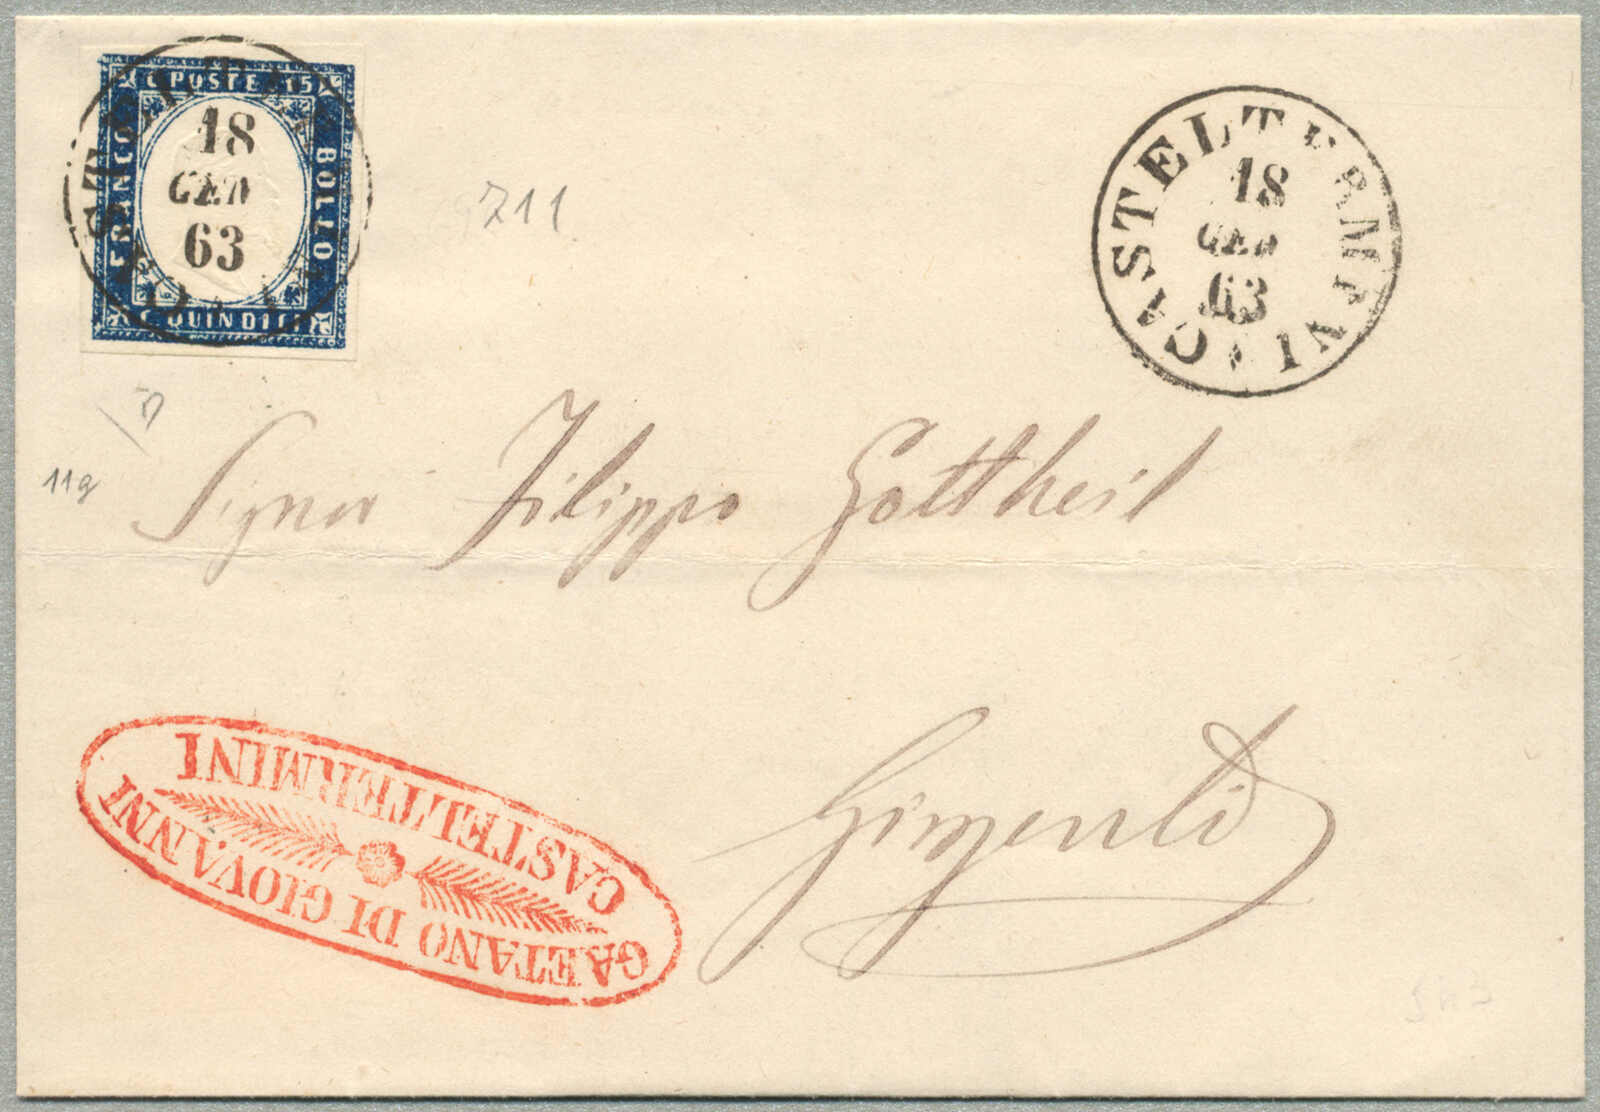 C POSTE 15
FRANCO
BOLLO
C QUINDICI
18
GEN
63
CASTELTERMINI
18
GEN
63
CASTELTERMINI
711
11g
Signor Filippo Gottheil
Girgenti
GAETANO DI GIOVANNI
CASTELTERMINI